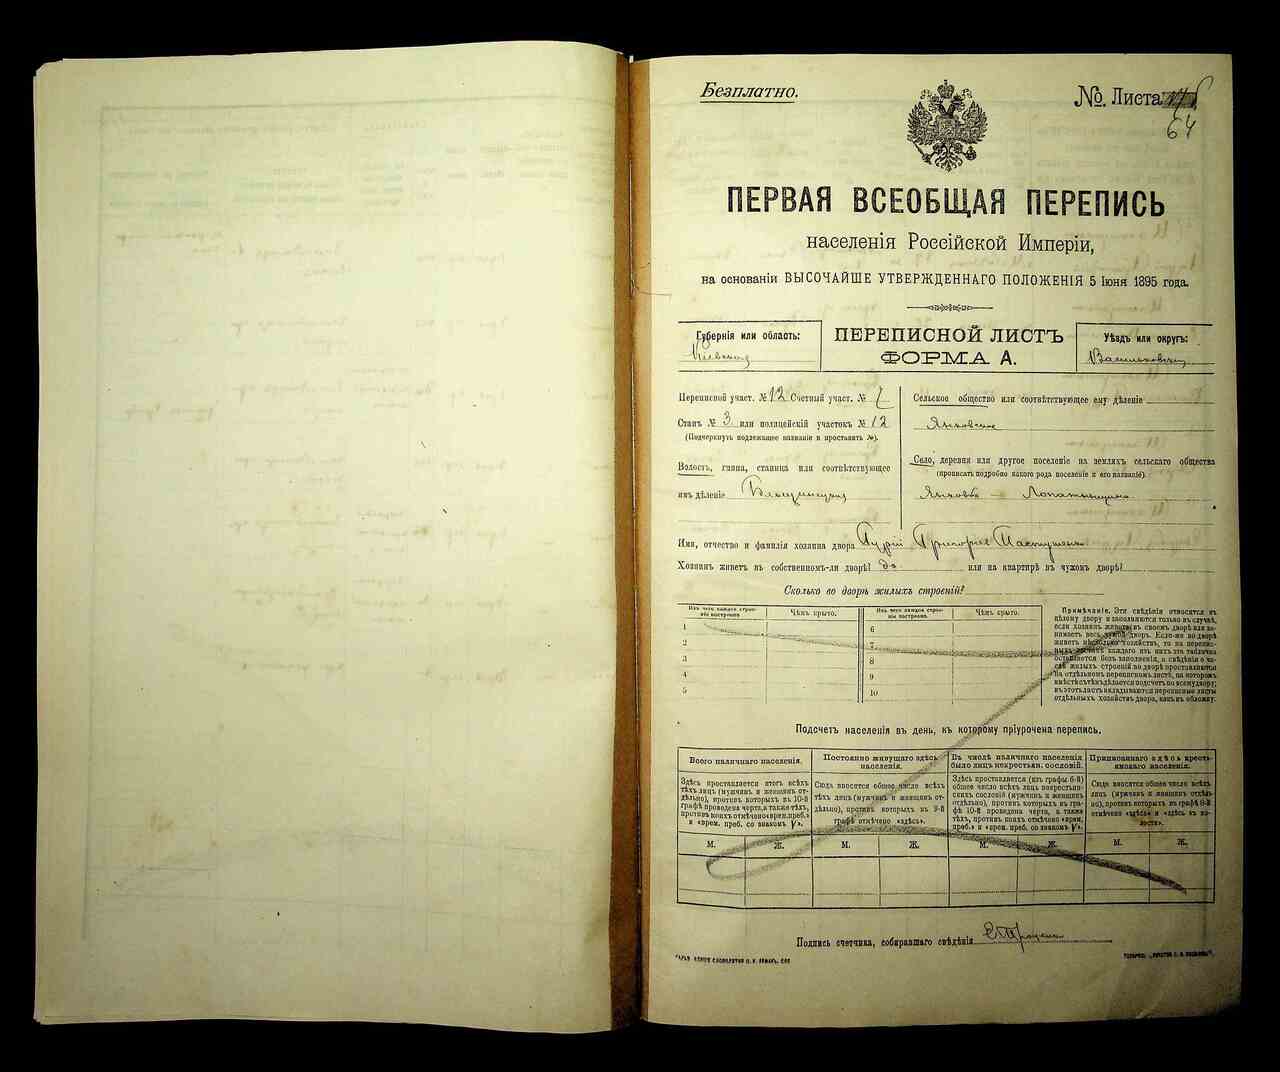 Безплатно.
№ Листа
64
ПЕРВАЯ ВСЕОБЩАЯ ПЕРЕПИСЬ
населенія Россійской Имперіи,
на основаніи ВЫСОЧАЙШЕ УТВЕРЖДЕННАГО ПОЛОЖЕНІЯ 5 Іюня 1895 года.
Губернія или область:
Кіевская
ПЕРЕПИСНОЙ ЛИСТЪ
ФОРМА А.
Уѣздъ или округъ:
Васильковскій
Переписной участ. № 12 Счетный участ. №
Станъ № 3 или полицейскій участокъ № 12
(Подчеркнуть подлежащее названіе и проставить №).
Волость, гмина, станица или соотвѣтствующее
имъ дѣленіе
Сельское общество или соотвѣтствующее ему дѣленіе
Село, деревня или другое поселеніе на земляхъ сельскаго общества
(прописать подробно какого рода поселеніе и его названіе).
Имя, отчество и фамилія хозяина двора
Хозяинъ живетъ въ собственномъ-ли дворѣ? да или на квартирѣ въ чужомъ дворѣ?
Сколько во дворѣ жилыхъ строеній?
Изъ чего каждое строеніе построено.
Чѣмъ крыто.
Изъ чего каждое строеніе построено.
Чѣмъ крыто.
1
2
3
4
5
6
7
8
9
10
Примѣчаніе. Эти свѣдѣнія относятся къ
цѣлому двору и заполняются только въ случаѣ,
если хозяинъ живетъ въ своемъ дворѣ или занимаетъ
весь чужой дворъ. Если-же во дворѣ
живетъ нѣсколько хозяйствъ, то на переписныхъ
листахъ каждаго изъ нихъ эта табличка
оставляется безъ заполненія, а свѣдѣнія о числѣ
жилыхъ строеній во дворѣ проставляются
на отдѣльномъ переписномъ листѣ, на которомъ
вмѣстѣ съ тѣмъ дѣлается подсчетъ по всему двору;
въ этотъ листъ вкладываются переписные листы
отдѣльныхъ хозяйствъ двора, какъ въ обложку.
Подсчетъ населенія въ день, къ которому пріурочена перепись.
Всего наличнаго населенія.
Постоянно живущаго здѣсь населенія.
Въ числѣ наличнаго населенія было лицъ некрестьян. сословій.
Приписаннаго здѣсь крестьянскаго населенія.
Здѣсь проставляется итогъ всѣхъ тѣхъ лицъ (мужчинъ и женщинъ отдѣльно), противъ которыхъ въ 10-й графѣ проведена черта, а также тѣхъ, противъ коихъ отмѣчено «врем. преб.» и «врем. преб. со знакомъ V».
Сюда вносятся общее число всѣхъ тѣхъ лицъ (мужчинъ и женщинъ отдѣльно), противъ которыхъ въ 9-й графѣ отмѣчено «здѣсь».
Здѣсь проставляется (изъ графы 6-й) общее число всѣхъ лицъ некрестьянскихъ сословій (мужчинъ и женщинъ отдѣльно), противъ которыхъ въ графѣ 10-й проведена черта, а также тѣхъ, противъ коихъ отмѣчено «врем. преб.» и «врем. преб. со знакомъ V».
Сюда вносятся общее число всѣхъ лицъ (мужчинъ и женщинъ отдѣльно), противъ которыхъ въ графѣ 8-й отмѣчено «здѣсь» и «здѣсь въ волости».
М. Ж. М. Ж. М. Ж. М. Ж.
Подпись счетчика, собиравшаго свѣдѣнія